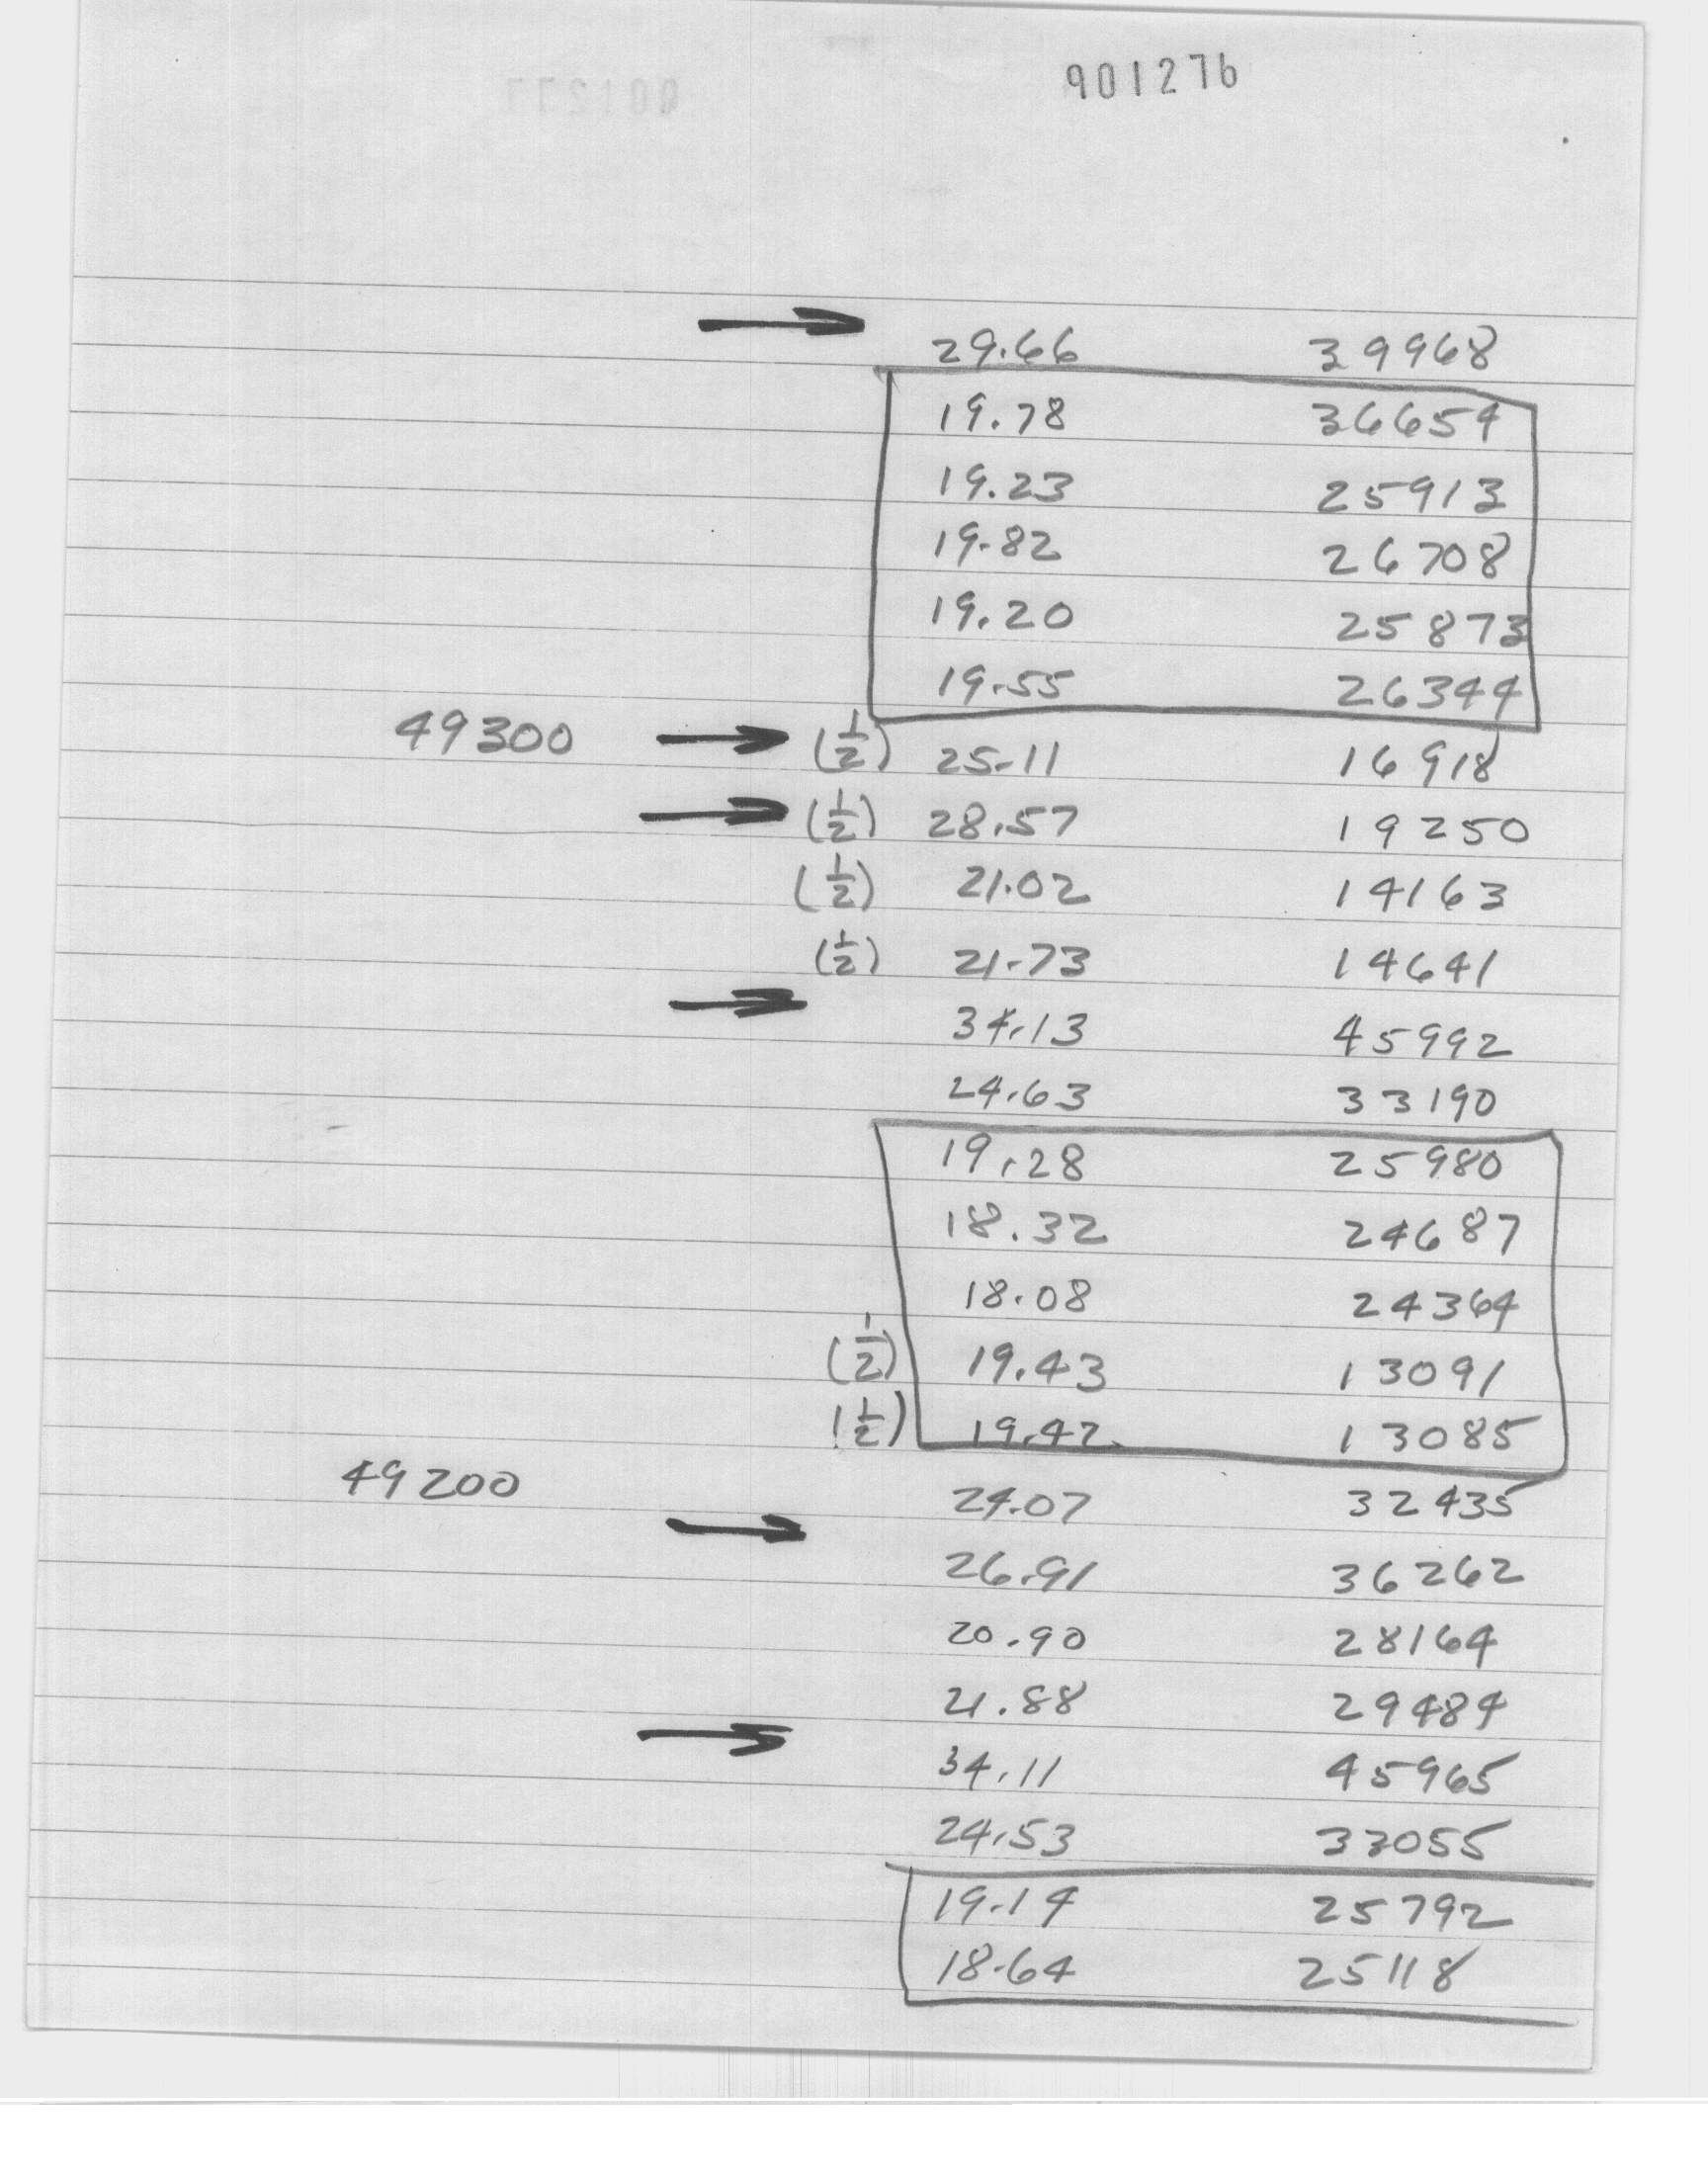 901276
29.66 39968
19.78 36654
19.23 25913
19.82 26708
19.20 25873
19.55 26344
49300 (1/2) 25.11 16918
(1/2) 28.57 19250
(1/2) 21.02 14163
(1/2) 21.73 14641
34.13 45992
24.63 33190
19.28 25980
18.32 24687
18.08 24364
(1/2) 19.43 13091
(1/2) 19.42 13085
49200 24.07 32435
26.91 36262
20.90 28164
21.88 29484
34.11 45965
24.53 33055
19.14 25792
18.64 25118